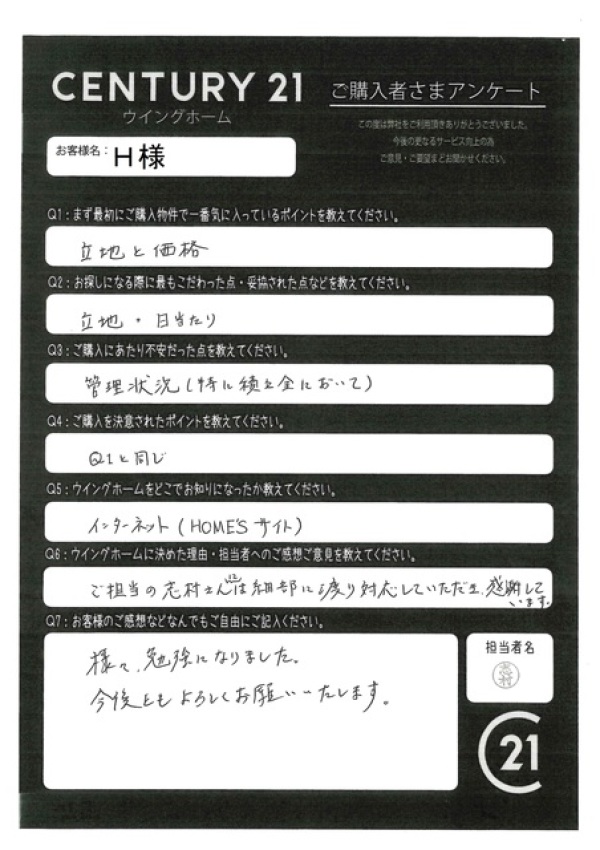 CENTURY 21
ウイングホーム
ご購入者さまアンケート
この度は弊社をご利用頂きありがとうございました。
今後の更なるサービス向上の為
ご意見・ご要望などお聞かせください。
お客様名：H様
Q1：まず最初にご購入物件で一番気に入っているポイントを教えてください。
立地と価格
Q2：お探しになる際に最もこだわった点・妥協された点などを教えてください。
立地・日当たり
Q3：ご購入にあたり不安だった点を教えてください。
管理状況(特に積立金において)
Q4：ご購入を決意されたポイントを教えてください。
Q1と同じ
Q5：ウイングホームをどこでお知りになったか教えてください。
インターネット(HOME'Sサイト)
Q6：ウイングホームに決めた理由・担当者へのご感想ご意見を教えてください。
ご担当の志村さんには細部に渡り対応していただき、感謝して
います。
Q7：お客様のご感想などなんでもご自由にご記入ください。
様々、勉強になりました。
今後ともよろしくお願いいたします。
担当者名
志村
C21